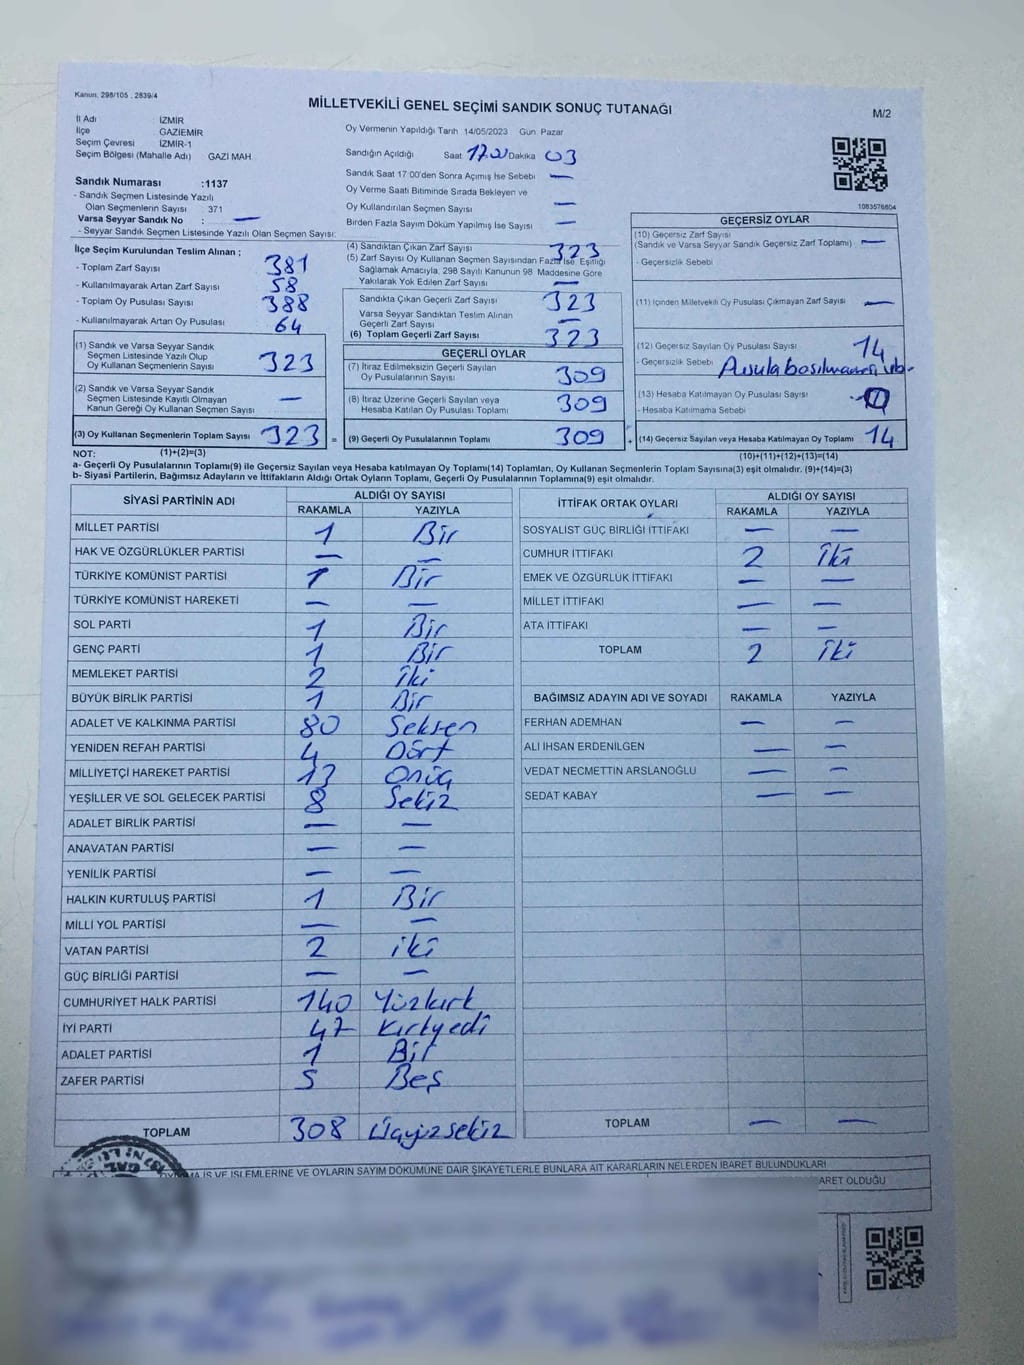 Kanun: 298/105 . 2839/4
MİLLETVEKİLİ GENEL SEÇİMİ SANDIK SONUÇ TUTANAĞI
M/2
İl Adı İZMİR
İlçe GAZİEMİR
Seçim Çevresi İZMİR-1
Seçim Bölgesi (Mahalle Adı) GAZİ MAH.
Oy Vermenin Yapıldığı Tarih 14/05/2023 Gün Pazar
Sandığın Açıldığı Saat 17:00 Dakika 03
Sandık Saat 17:00'den Sonra Açılmış İse Sebebi —
Oy Verme Saati Bitiminde Sırada Bekleyen ve
Oy Kullandırılan Seçmen Sayısı —
Birden Fazla Sayım Döküm Yapılmış İse Sayısı —
1083576604
Sandık Numarası :1137
- Sandık Seçmen Listesinde Yazılı
Olan Seçmenlerin Sayısı : 371
Varsa Seyyar Sandık No : —
- Seyyar Sandık Seçmen Listesinde Yazılı Olan Seçmen Sayısı:
İlçe Seçim Kurulundan Teslim Alınan ;
- Toplam Zarf Sayısı 381
- Kullanılmayarak Artan Zarf Sayısı 58
- Toplam Oy Pusulası Sayısı 388
- Kullanılmayarak Artan Oy Pusulası 64
(1) Sandık ve Varsa Seyyar Sandık
Seçmen Listesinde Yazılı Olup
Oy Kullanan Seçmenlerin Sayısı 323
(2) Sandık ve Varsa Seyyar Sandık
Seçmen Listesinde Kayıtlı Olmayan
Kanun Gereği Oy Kullanan Seçmen Sayısı —
(3) Oy Kullanan Seçmenlerin Toplam Sayısı 323 =
(4) Sandıktan Çıkan Zarf Sayısı 323
(5) Zarf Sayısı Oy Kullanan Seçmen Sayısından Fazla İse, Eşitliği
Sağlamak Amacıyla, 298 Sayılı Kanunun 98. Maddesine Göre
Yakılarak Yok Edilen Zarf Sayısı —
Sandıkta Çıkan Geçerli Zarf Sayısı 323
Varsa Seyyar Sandıktan Teslim Alınan
Geçerli Zarf Sayısı —
(6) Toplam Geçerli Zarf Sayısı 323
GEÇERLİ OYLAR
(7) İtiraz Edilmeksizin Geçerli Sayılan
Oy Pusulalarının Sayısı 309
(8) İtiraz Üzerine Geçerli Sayılan veya
Hesaba Katılan Oy Pusulası Toplamı 309
(9) Geçerli Oy Pusulalarının Toplamı 309 +
GEÇERSİZ OYLAR
(10) Geçersiz Zarf Sayısı
(Sandık ve Varsa Seyyar Sandık Geçersiz Zarf Toplamı) —
- Geçersizlik Sebebi
(11) İçinden Milletvekili Oy Pusulası Çıkmayan Zarf Sayısı —
(12) Geçersiz Sayılan Oy Pusulası Sayısı 14
- Geçersizlik Sebebi
(13) Hesaba Katılmayan Oy Pusulası Sayısı
- Hesaba Katılmama Sebebi
(14) Geçersiz Sayılan veya Hesaba Katılmayan Oy Toplamı 14
NOT: (1)+(2)=(3)
(10)+(11)+(12)+(13)=(14)
a- Geçerli Oy Pusulalarının Toplamı(9) ile Geçersiz Sayılan veya Hesaba katılmayan Oy Toplamı(14) Toplamları, Oy Kullanan Seçmenlerin Toplam Sayısına(3) eşit olmalıdır. (9)+(14)=(3)
b- Siyasi Partilerin, Bağımsız Adayların ve İttifakların Aldığı Ortak Oyların Toplamı, Geçerli Oy Pusulalarının Toplamına(9) eşit olmalıdır.
SİYASİ PARTİNİN ADI ALDIĞI OY SAYISI
RAKAMLA YAZIYLA
MİLLET PARTİSİ 1 Bir
HAK VE ÖZGÜRLÜKLER PARTİSİ — —
TÜRKİYE KOMÜNİST PARTİSİ 1 Bir
TÜRKİYE KOMÜNİST HAREKETİ — —
SOL PARTİ 1 Bir
GENÇ PARTİ 1 Bir
MEMLEKET PARTİSİ 2 İki
BÜYÜK BİRLİK PARTİSİ 1 Bir
ADALET VE KALKINMA PARTİSİ 80 Seksen
YENİDEN REFAH PARTİSİ 4 Dört
MİLLİYETÇİ HAREKET PARTİSİ 13 Onüç
YEŞİLLER VE SOL GELECEK PARTİSİ 8 Sekiz
ADALET BİRLİK PARTİSİ — —
ANAVATAN PARTİSİ — —
YENİLİK PARTİSİ — —
HALKIN KURTULUŞ PARTİSİ 1 Bir
MİLLİ YOL PARTİSİ — —
VATAN PARTİSİ 2 iki
GÜÇ BİRLİĞİ PARTİSİ — —
CUMHURİYET HALK PARTİSİ 140 Yüzkırk
İYİ PARTİ 47 Kırkyedi
ADALET PARTİSİ 1 Bir
ZAFER PARTİSİ 5 Beş
TOPLAM 308 Üçyüzsekiz
İTTİFAK ORTAK OYLARI ALDIĞI OY SAYISI
RAKAMLA YAZIYLA
SOSYALİST GÜÇ BİRLİĞİ İTTİFAKI — —
CUMHUR İTTİFAKI 2 İki
EMEK VE ÖZGÜRLÜK İTTİFAKI — —
MİLLET İTTİFAKI — —
ATA İTTİFAKI — —
TOPLAM 2 İki
BAĞIMSIZ ADAYIN ADI VE SOYADI RAKAMLA YAZIYLA
FERHAN ADEMHAN — —
ALİ İHSAN ERDENİLGEN — —
VEDAT NECMETTİN ARSLANOĞLU — —
SEDAT KABAY — —
TOPLAM — —
İŞ VE İŞLEMLERİNE VE OYLARIN SAYIM DÖKÜMÜNE DAİR ŞİKAYETLERLE BUNLARA AİT KARARLARIN NELERDEN İBARET BULUNDUKLARI
OLDUĞU